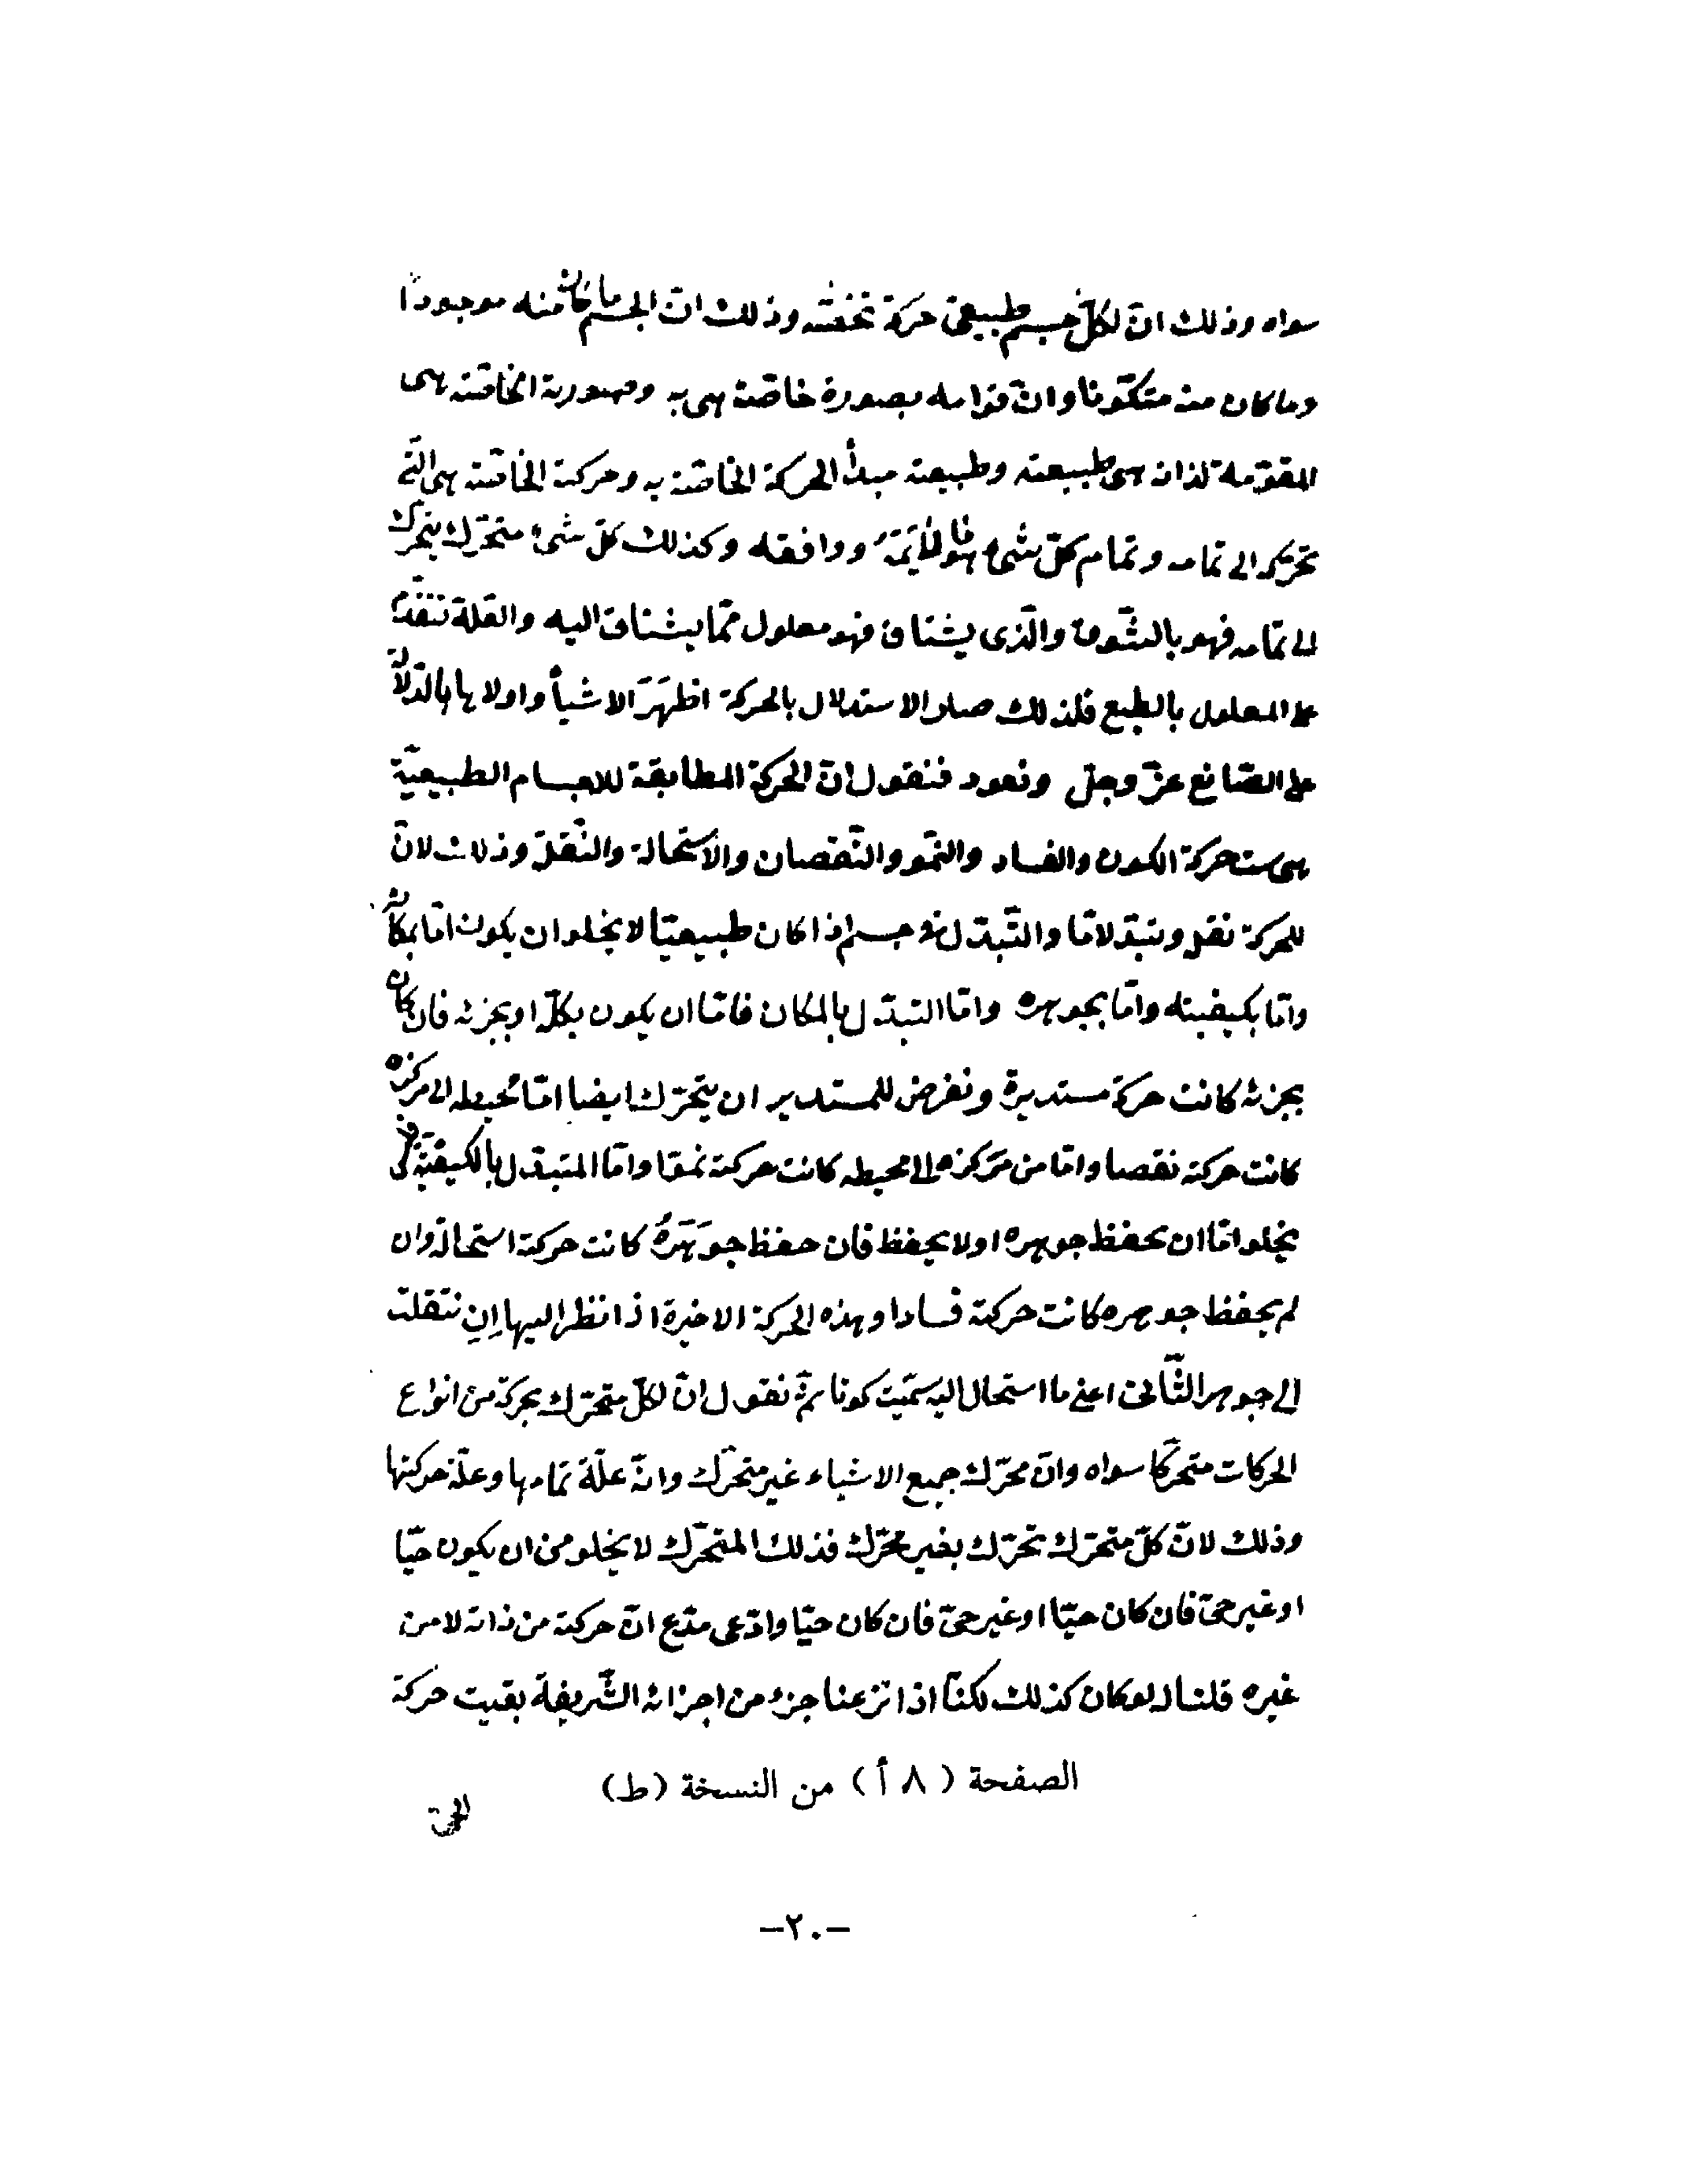 سواه وذلك انّ لكلّ جسم طبيعىّ حركة تخصّه وذلك انّ الجسم ما كان منه موجودًا
وما كان منه متكوّنا وانّ قوامه بصورة خاصّة هى به وصورته الخاصّة هى
المقوّمة لذاته هى طبيعته وطبيعته مبدأ الحركة الخاصّة به وحركته الخاصّة هى الّتى
تحركه الى تمامه وتمام كلّ شىء هو ما لايَمَهُ ووافقه وكذلك كلّ شىء متحرّك يتحرّك
الى تمامه فهو بالشّوق والّذى يشتاق فهو معلول ممّا يشتاق اليه والعلّة تتقدّم
على المعلول بالطبع فلذلك صار الاستدلال بالحركة اظهَرَ الاشيأ واولاها بالدّلالة
على الصّانع عزّ وجلّ ونعود فنقول انّ الحركة المطابقة للاجسام الطبيعيّة
هى ست حركة الكون والفساد والنموّ والنّقصان والاستحالة والنّقل وذلك لانّ
للحركة نقل وتبدّلا مّا والتّبدّل فى جسم اذا كان طبيعيّا لا يخلو ان يكون امّا بمكانه
وامّا بكيفيته وامّا بجوهره وامّا التبدّل بالمكان فامّا ان يكون بكلّه او بجزئه فان كان
بجزئه كانت حركة مستديرة ونفرض للمستدير ان يتحرّك ايضا امّا محيطه الى مركزه
كانت حركته نقصا وامّا من مَركزه الى محيطه كانت حركته نموّا وامّا المتبدّل بالكيفيّة فلا
يخلو امّا ان يحفظ جوهره اولا يحفظ فان حفظ جَوهَرَهُ كانت حركته استحالة وان
لم يحفظ جوهره كانت حركته فسادا وهذه الحركة الاخيرة اذا نظر اليها اِنِ نتقلت
الى جوهر الثّانى اعنى ما استحال اليه سمّيت كونا ثمّ نقول انّ لكلّ متحرّك بحركة من انواع
الحركات متحرّكا سواه وانّ محرّك جميع الاشياء غير متحرّك وانّه علّة تمامها وعلّة حركتها
وذلك لانّ كلّ متحرّك تحرّك بغير محرّك فذلك المتحرّك لا يخلو من ان يكون حيّا
او غير حىّ فان كان حيّا او غير حىّ فان كان حيّا وادّعى مدّع انّ حركته من ذاته لا من
غيره قلنا له لو كان كذلك لكنّا اذا نزعنا جزء من اجزائه الشّريفة بقيت حركة
الصفحة ( ٨ أ ) من النسخة (ط)
الحىّ
–٢٠–